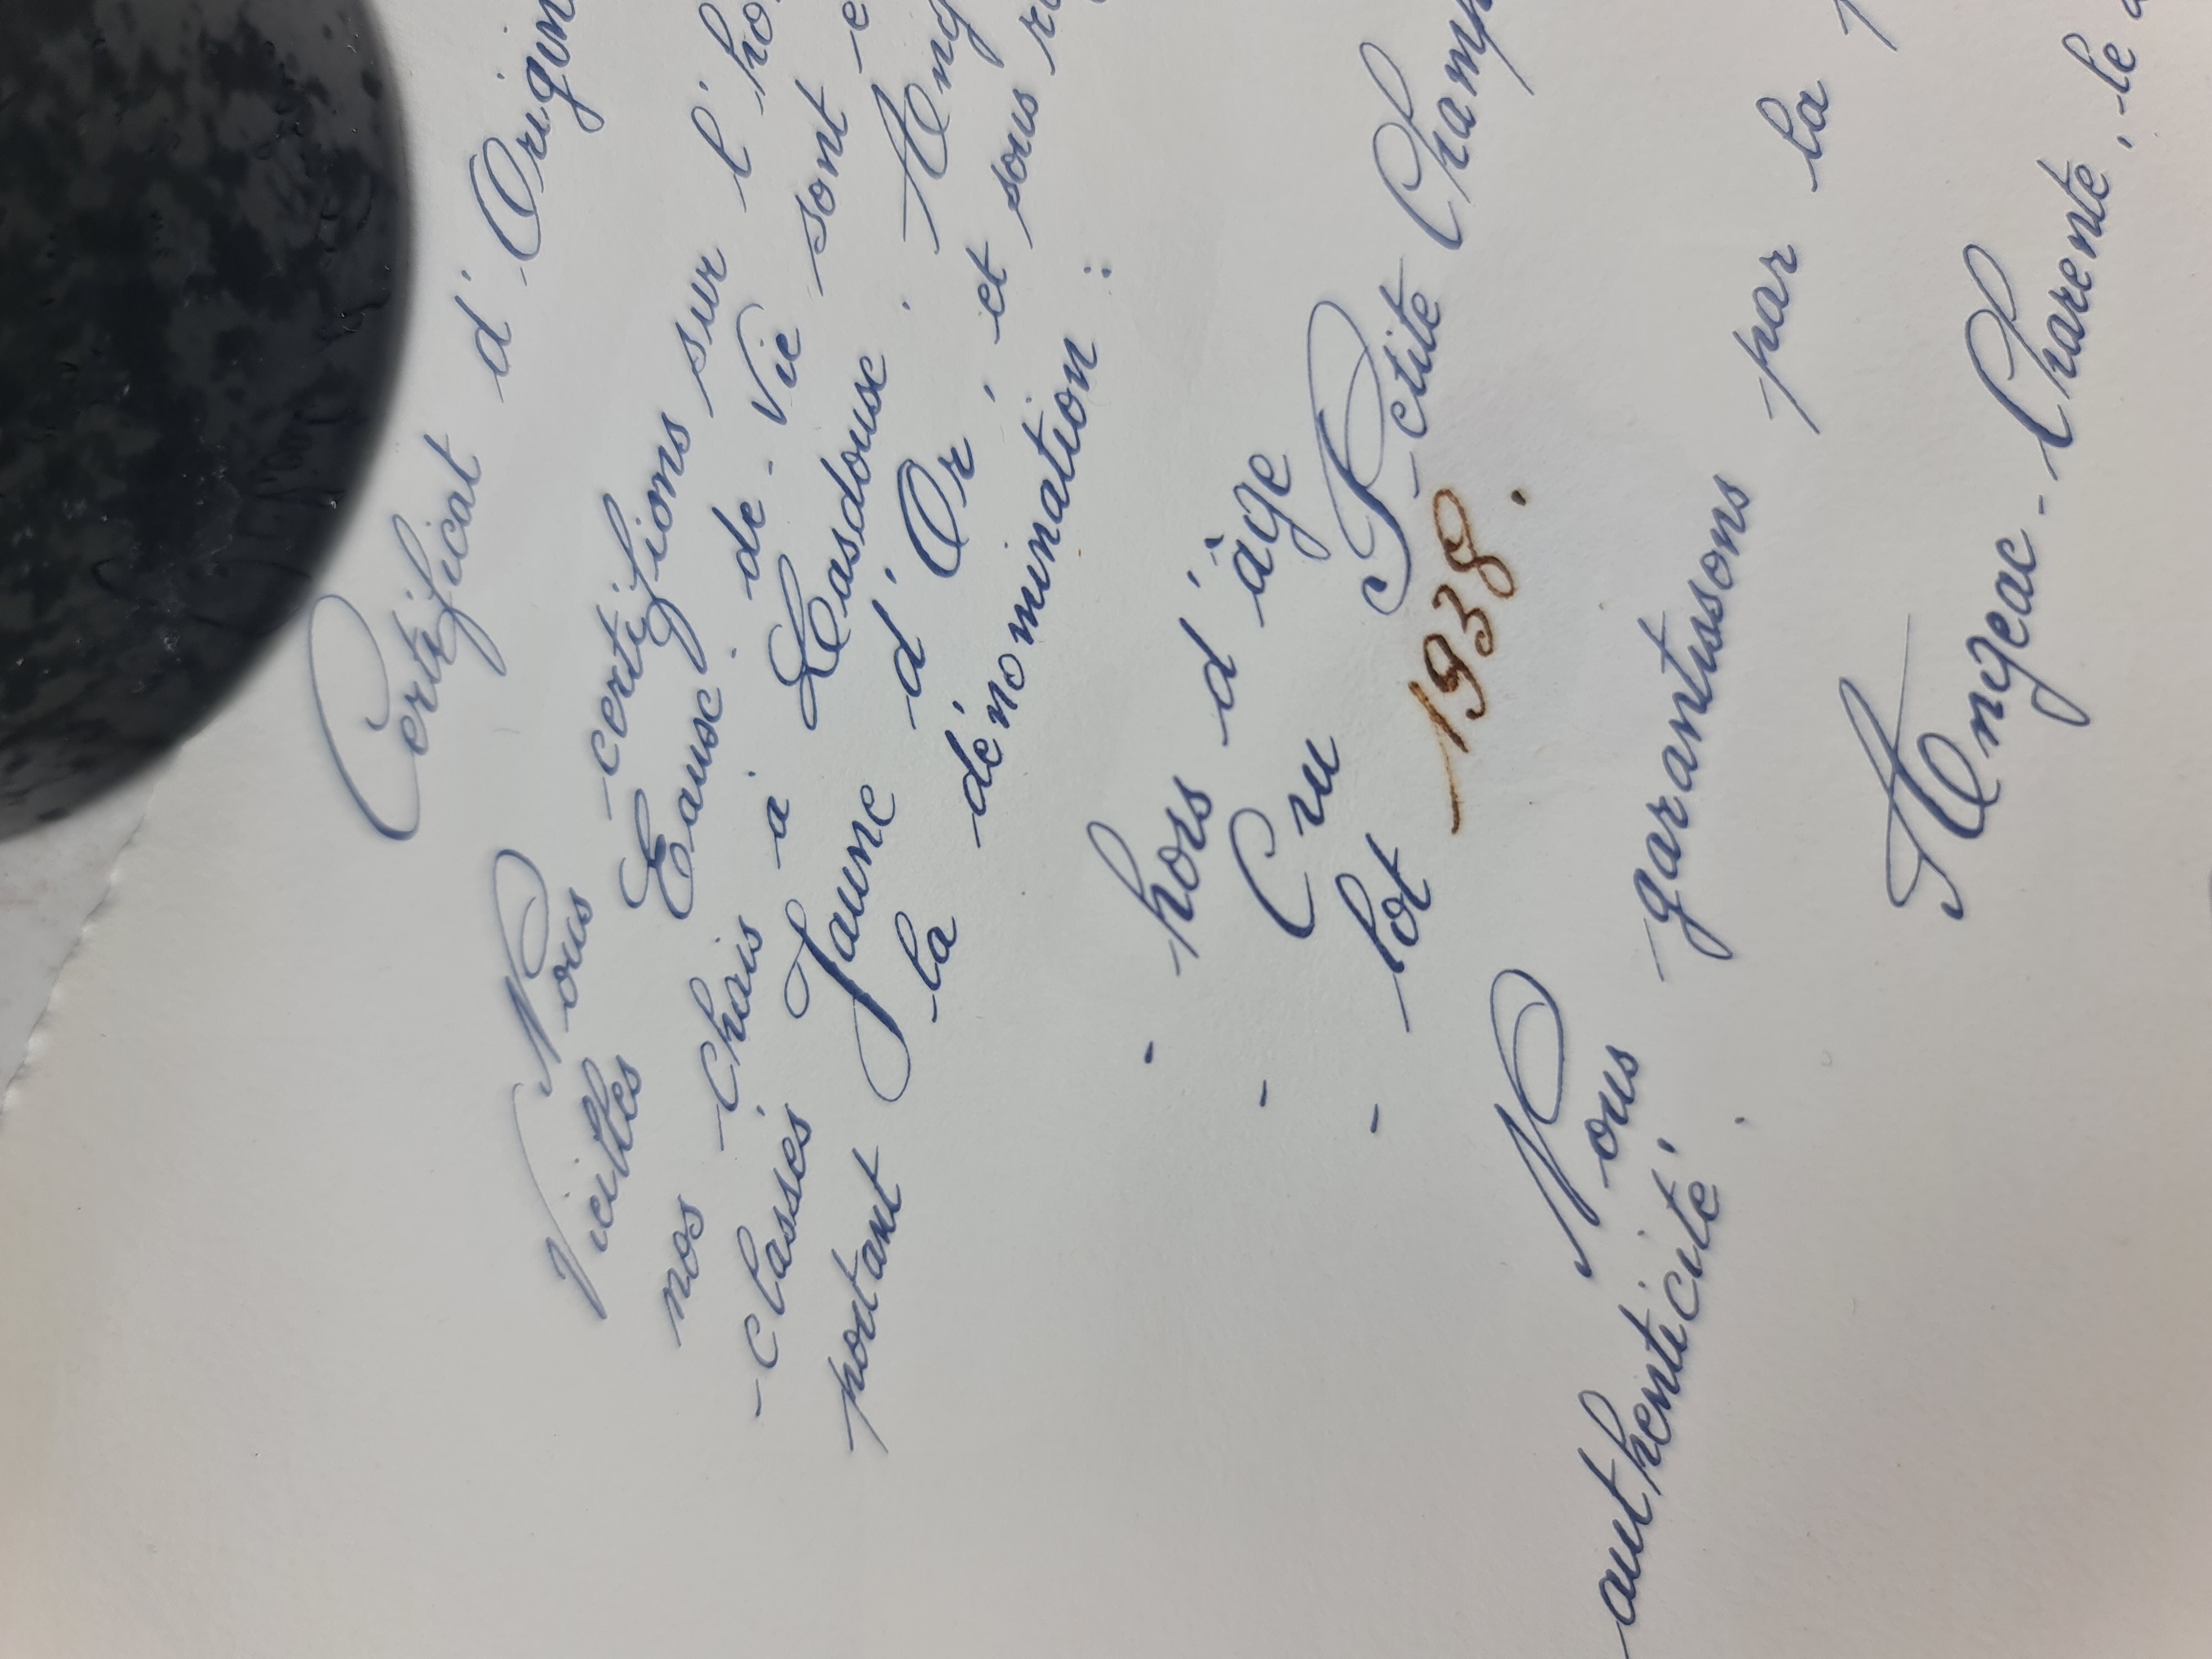 Certificat d'Origin
Nous certifions sur l'ho
Vieilles Eausc. de. Vie sont e
nos chais à Lasdousc. Ang
classés Jaune d'Or, et sous r
portant la dénomination :
- hors d'âge
- Cru Petite Champ
- lot 1938.
Nous garantissons par la
authenticité.
Angeac-Charente, le